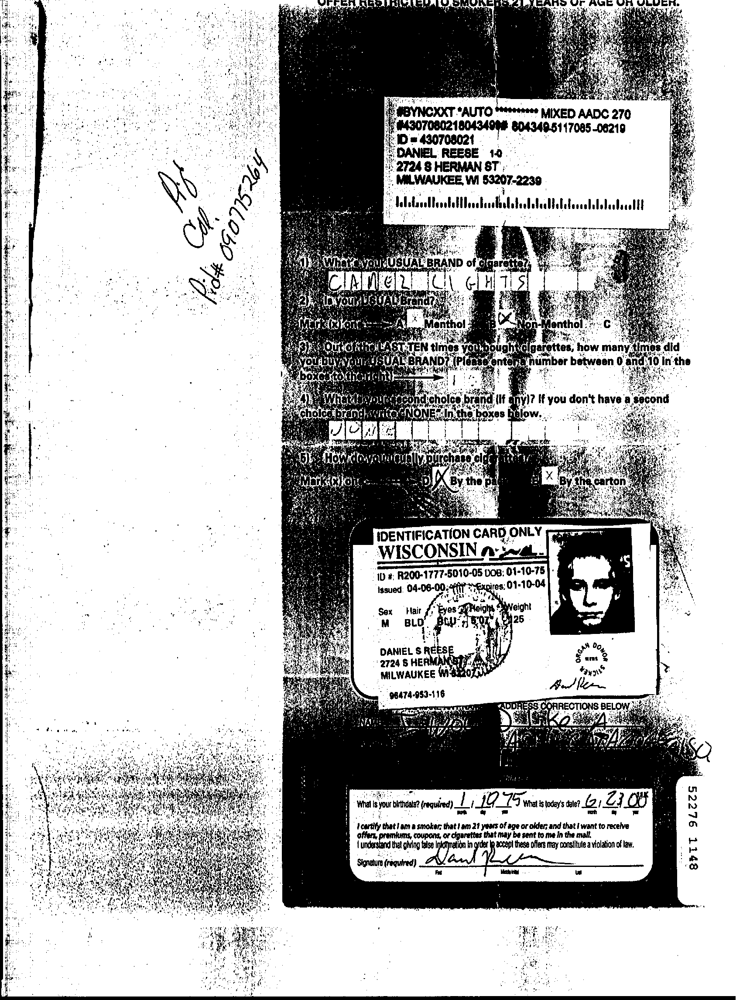 OFFER RESTRICTED TO SMOKERS 21 YEARS OF AGE OR OLDER.
#BYNCXXT *AUTO ********** MIXED AADC 270
#4307080218043499# 804349-5117085-06219
ID = 430708021
DANIEL REESE 1-0
2724 S HERMAN ST
MILWAUKEE, WI 53207-2239
Prod# 090775264
1) What's your USUAL BRAND of cigarette?
CAMEL LIGHTS
2) Is your USUAL Brand?
Mark (x) one A X Menthol B X Non-Menthol C
3) Out of the LAST TEN times you bought cigarettes, how many times did
you buy your USUAL BRAND? (Please enter a number between 0 and 10 in the
boxes to the right)
4) What is your second choice brand (if any)? If you don't have a second
choice brand, write "NONE" in the boxes below.
NONE
5) How do you usually purchase cigarettes?
Mark (x) one D X By the pack E X By the carton
IDENTIFICATION CARD ONLY
WISCONSIN
ID #: R200-1777-5010-05 DOB: 01-10-75
Issued 04-06-00 Expires: 01-10-04
Sex Hair Eyes Height Weight
M BLD BLU 5'07 125
DANIEL S REESE
2724 S HERMAN ST
MILWAUKEE WI 53207
ORGAN DONOR STICKER HERE
96474-953-116
ADDRESS CORRECTIONS BELOW
What is your birthdate? (required) 1, 10 75 What is today's date? 6, 23 00
I certify that I am a smoker; that I am 21 years of age or older; and that I want to receive
offers, premiums, coupons, or cigarettes that may be sent to me in the mail.
I understand that giving false information in order to accept these offers may constitute a violation of law.
Signature (required)
First Middle Initial Last
52276 1148